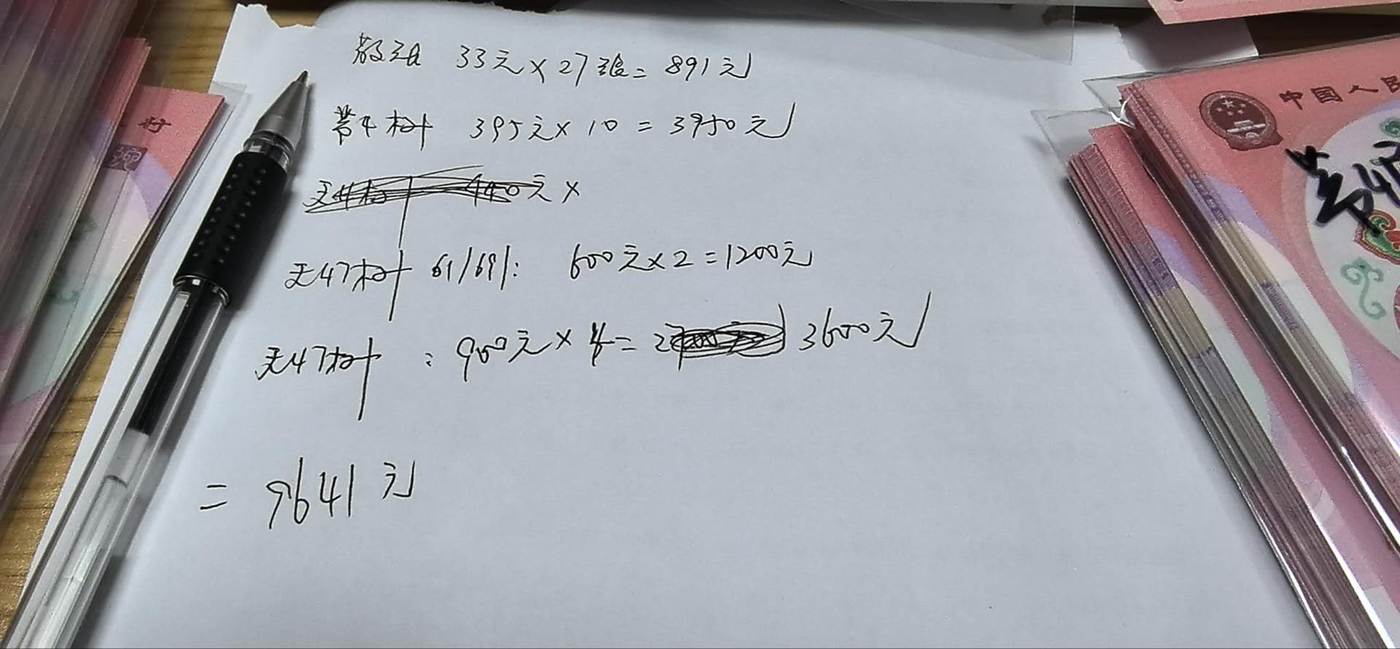 散张 33元×27张=891元
带4村 395元×10=3950元
元×
无47村 61/69/: 600元×2=1200元
无47村 : 900元×4= 3600元
= 9641元
中国人民
带4
村